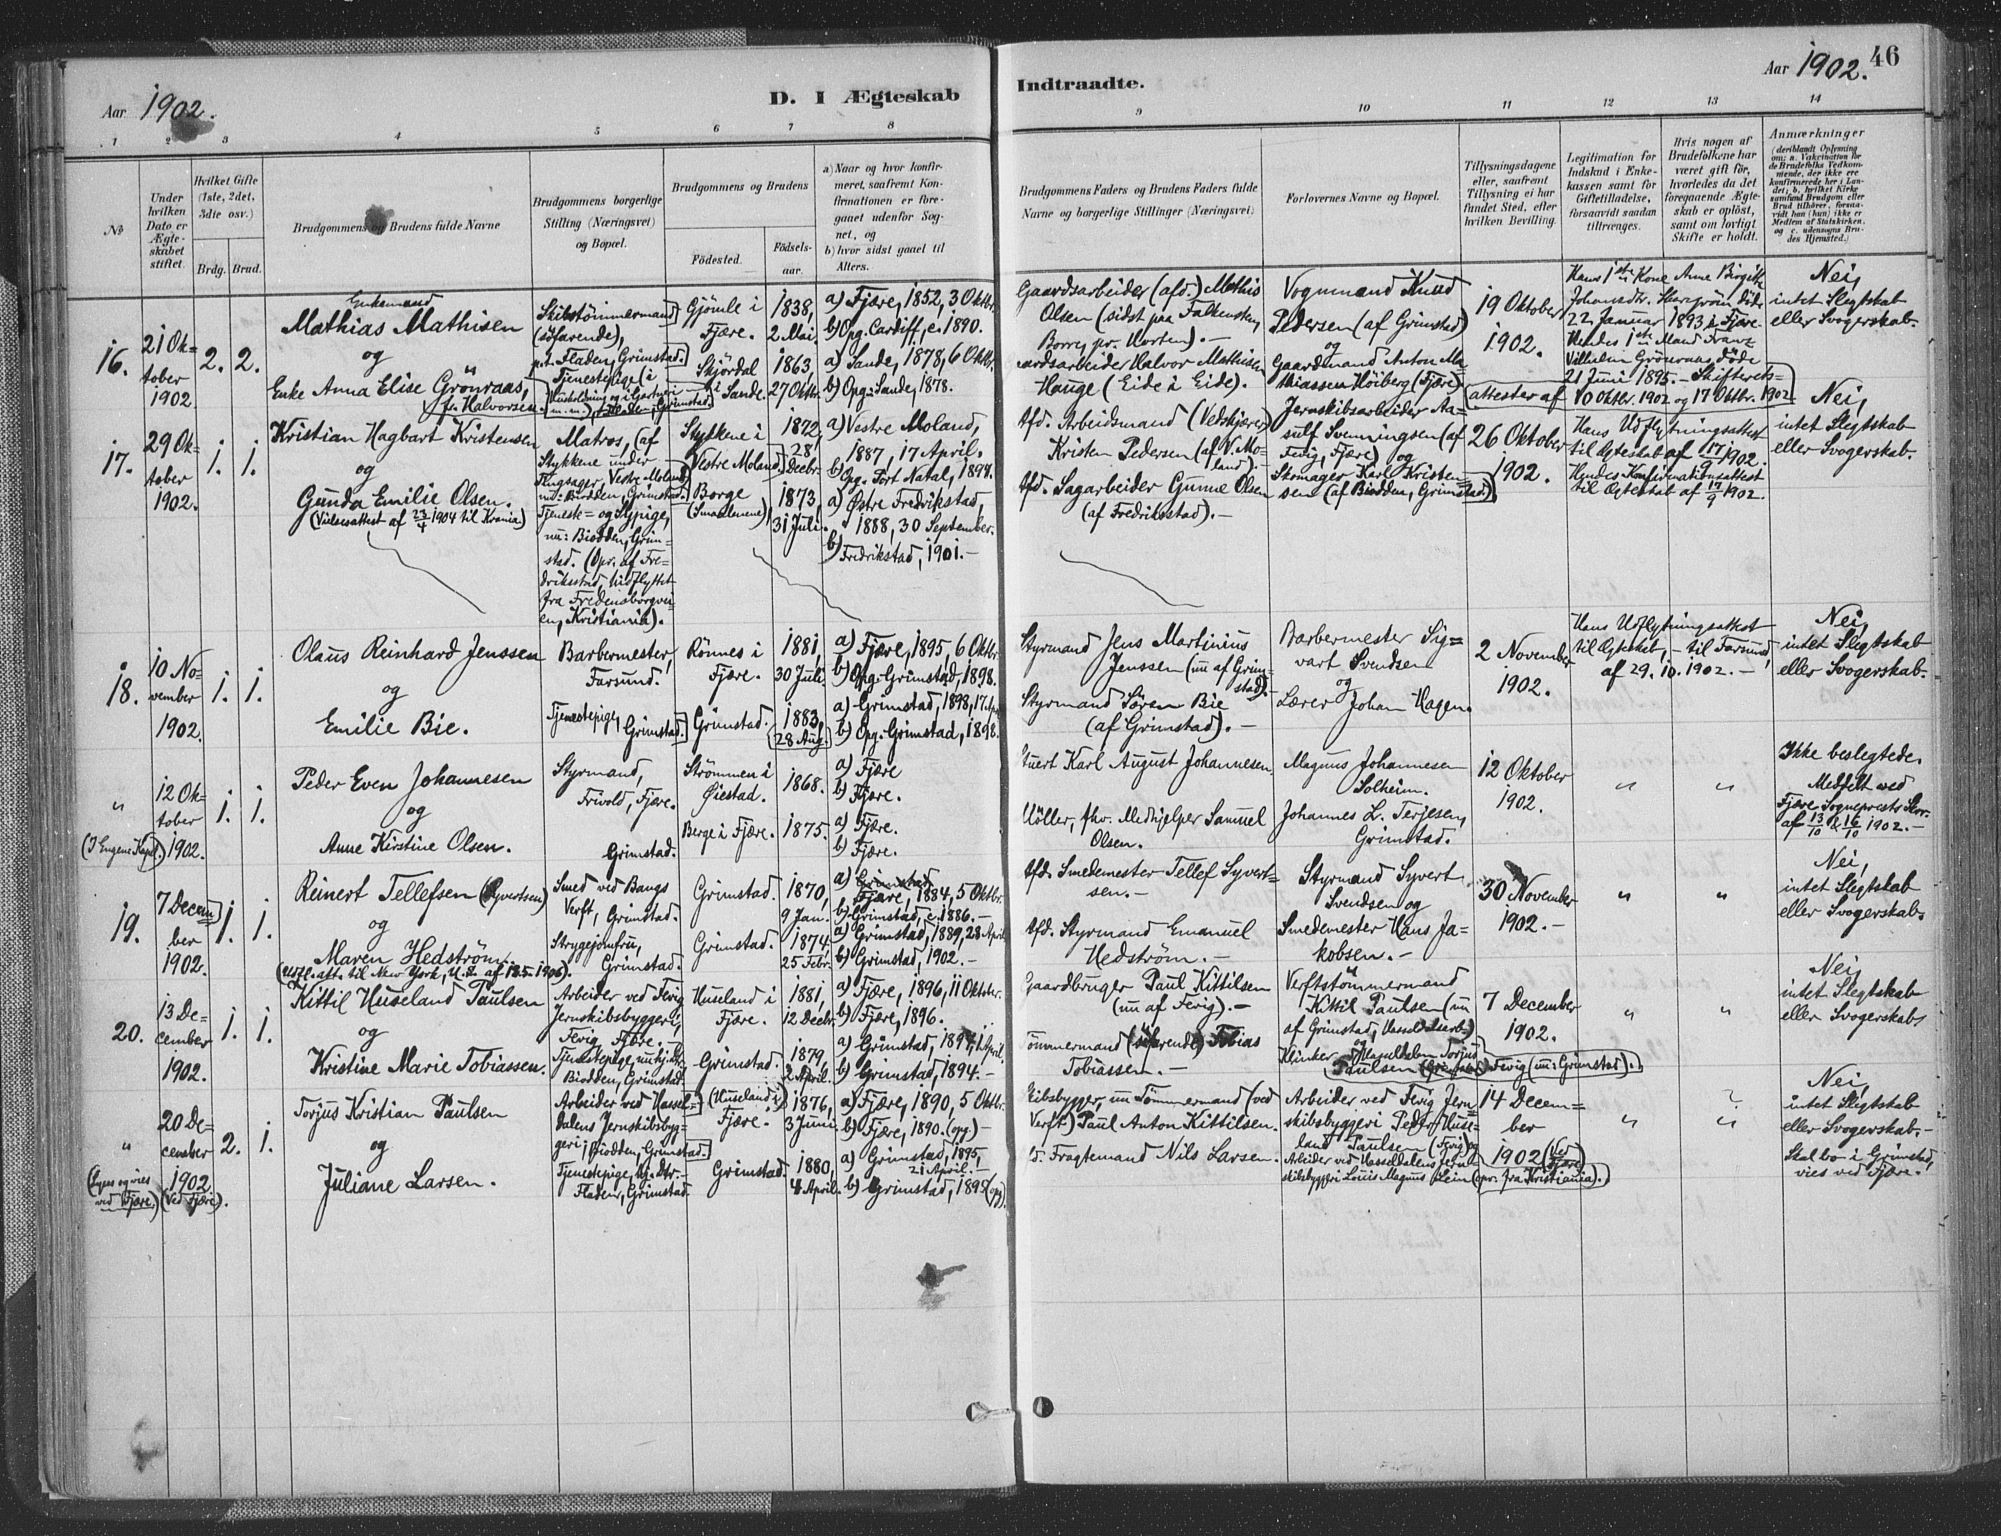 Aar 1902.
D. I Ægteskab
Indtraadte.
Aar 1902.
46
1 2 3 4 5 6 7 8
9 10 11 12 13 14
No
Under hvilken Dato er Ægteskabet stiftet.
Hvilket Gifte (1ste, 2det, 3die osv.)
Brdg. Brud.
Brudgommens og Brudens fulde Navne
Brudgommens borgerlige Stilling (Næringsvei) og Bopæl.
Brudgommens og Brudens
Födested.
Födselsaar.
a) Naar og hvor konfirmeret, saafremt Konfirmationen er foregaaet udenfor Sognet, og
b) hvor sidst gaaet til Alters.
Brudgommens Faders og Brudens Faders fulde Navne og borgerlige Stillinger (Næringsvei)
Forlovernes Navne og Bopæl.
Tillysningsdagene eller, saafremt Tillysning ei har fundet Sted, efter hvilken Bevilling.
Legitimation for Indskud i Enkekassen samt for Giftetilladelse, forsaavidt saadan tiltrænges.
Hvis nogen af Brudefolkene har været gift för, hvorledes da det foregaaende Ægteskab er oplöst, samt om lovligt Skifte er holdt.
Anmærkninger
(deriblandt Oplysning om: a. Vakcination for de Brudefolks Vedkommende, der ikke ere konfirmerede her i Landet; b. hvilket Kirkesamfund Brudgom eller Brud tilhörer, forsaavidt han (hun) ikke er Medlem af Statskirken, og c. udensogns Brudes Hjemsted.)
16.
21 Oktober 1902
2. 2.
Enkemand
Mathias Mathisen
og
Enke Anna Elise Grönraas,
f. Halvorsen
Skibstömmermand
(söfarende),
p.t. Fladen, Grimstad.
Tjenestepige (i
Husholdning og i Gartneri
m.m.), Fladen, Grimstad
Gjömle i
Fjære.
Skjördal
i Sande.
1838,
2 Mai.
1863,
27 Oktbr.
a) Fjære, 1852, 3 Oktbr.
b) Opg. Cardiff, c. 1890.
a) Sande, 1878, 6 Oktbr.
b) Opg. Sande, 1878.
Gaardsarbeider (afd.) Mathis
Olsen (sidst paa Falkensten,
Borre, pr. Horten). —
Gaardsarbeider Halvor Mathisen
Hauge (Eide i Eide).
Vognmand Knud
Pedersen (af Grimstad)
og
Gaardmand Anton Mathiassen Höiberg (Fjære)
19 Oktober
1902.
Hans 1ste Kone Anne Birgitte
Johansdtr. döde
22 Januar 1893 i Fjære
Hendes 1ste Mand Franz
Vilhelm Grönraas döde
21 Juni 1895. — Skifteretsattester af
10 Oktbr. 1902 og 17 Oktbr. 1902
Nei,
intet Slegtskab
eller Svogerskab.
17.
29 Oktober
1902.
1. 1.
Kristian Hagbart Kristensen
og
Gunda Emilie Olsen.
(Vielsesattest af 23/4 1904 til Krania)
Matros, (af
Stykkene under
Vestre Moland)
nu: Biodden, Grimstad.
Tjenest= og Sypige,
nu: Biodden, Grimstad. (Opr. af Fredriksstad, Udflyttet
fra Fredensborgveien, Kristiania).
Stykkene i
Vestre Moland
Borge
(Smaalenene)
1872,
28
Decbr.
1873,
31 Juli.
a) Vestre Moland,
1887, 17 April.
b) Opg. Port Natal, 1898.
a) Østre Fredrikstad,
1888, 30 September.
b) Fredrikstad, 1901. —
Afd. Arbeidsmand (Vedskjærer)
Kristen Pedersen (af V. Moland). —
Afd. Sagarbeider Gunne Olsen
(af Fredriksstad). —
Jernskibsarbeider Aasulf Svenningsen (af
Fevig, Fjære) og
Skomager Karl Kristensen (af Biodden, Grimstad)
26 Oktober
1902.
Hans Udflytningsattest
til Ægteskab af 17/9 1902.
Hendes Konfirmationsattest
til Ægteskab af 17/9 1902.
Nei,
intet Slegtskab
eller Svogerskab.
18.
10 November
1902.
1. 1.
Olaus Reinhard Jenssen
og
Emilie Bie.
Barbermester,
Farsund.
Tjenestepige,
Grimstad.
Rönnes i
Fjære.
Grimstad.
1881,
30 Juli.
1883,
28 Aug.
a) Fjære, 1895, 6 Oktbr.
b) Opg. Grimstad, 1898.
a) Grimstad, 1898, 17. Apr.
b) Opg. Grimstad, 1898.
Styrmand Jens Martinius
Jenssen (nu af Grimstad). —
Styrmand Sören Bie
(af Grimstad). —
Barbermester Sigvart Svendsen
og
Lærer Johan Hagen.
2 November
1902.
Hans Udflytningsattest
til Ægteskab, — til Farsund,
af 29. 10. 1902. —
Nei,
intet Slegtskab
eller Svogerskab.
"
(I Engene Kapel.)
12 Oktober
1902.
1. 1.
Peder Even Johannesen
og
Anne Kirstine Olsen.
Styrmand,
Frivold, Fjære.
Grimstad.
Strömmen i
Øiestad.
Berge i Fjære.
1868.
1875.
a) Fjære
b) Fjære.
a) Fjære.
b) Fjære.
Karl August Johannesen.
Möller, fhv. Medhjelper Samuel
Olsen.
Magnus Johannesen
Solheim.
Johannes L. Terjesen,
Grimstad.
12 Oktober
1902.
" "
Ikke beslegtede.
Medfelt ved
Fjære Sogneprests Skr.
af 13/10 & 16/10 1902. —
19.
7 December
1902.
1. 1.
Reinert Tellefsen (Syvertsen)
og
Maren Hedström.
(Udfl. att. til New York, U. S. af 12.5.1906).
Smed ved Bangs
Verft, Grimstad.
Strygejomfru,
Grimstad.
Grimstad.
Grimstad.
1870,
9 Jan.
1874,
25 Febr.
a) Grimstad
Fjære, 1884, 5 Oktbr.
b) Grimstad, c. 1886. —
a) Grimstad, 1889, 28 April
b) Grimstad, 1902. —
Afd. Smedemester Tellef Syvertsen. —
Afd. Styrmand Emanuel
Hedström. —
Styrmand Syvert
Svendsen og
Smedemester Hans Jakobsen. —
30 November
1902. —
" "
Nei,
intet Slegtskab
eller Svogerskab.
20.
13 December
1902.
1. 1.
Kittil Huseland Paulsen
og
Kristine Marie Tobiassen.
Arbeider ved Fevig
Jernskibsbyggeri,
Fevig, Fjære. —
Tjenestepige, nu hj. dtr.
Biodden, Grimstad.
Huseland i
Fjære.
Grimstad.
1881,
12 Decbr.
1879,
2 April.
a) Fjære, 1896, 11 Oktober.
b) Fjære, 1896.
a) Grimstad, 1894, 1 April.
b) Grimstad, 1894. —
Gaardbruger Paul Kittilsen
(nu af Fevig). —
Tömmermand (söfarende) Tobias
Tobiassen. —
Verftstömmermand
Kittil Paulsen (nu
af Grimstad, Hasseldalsarb.)
og
Klinker Torjus
Paulsen Fevig (nu: Grimstad).
7 December
1902.
" "
Nei,
intet Slegtskab
eller Svogerskab
"
(Lyses og vies
ved Fjære.)
20 December
1902
(Ved Fjære).
2. 1.
Torjus Kristian Paulsen
og
Juliane Larsen.
Arbeider ved Hasseldalens Jernskibsbyggeri, Biodden, Grimstad.
Tjenestepige, hj. dtr.
Fladen, Grimstad.
(Huseland i)
Fjære.
Grimstad.
1876,
3 Juni.
1880,
4 April.
a) Fjære, 1890, 5 Oktbr.
b) Fjære, 1890. (opg) —
a) Grimstad, 1895,
21 April. —
b) Grimstad, 1895 (opg).
Skibsbygger, nu Tömmermand (ved
Verft) Paul Anton Kittilsen.
Fragtemand Nils Larsen.
Arbeider ved Fevig Jernskibsbyggeri Peder Huseland Paulsen (Fevig) og
Arbeider ved Hasseldalens Jernskibsbyggeri Louis Magnus Lein (opr. fra Kristiania).
14 December
1902 (Ved
Fjære)
" "
Nei,
intet Slegtskab
eller Svogerskab. —
Skal bo i Grimstad,
vies ved Fjære.